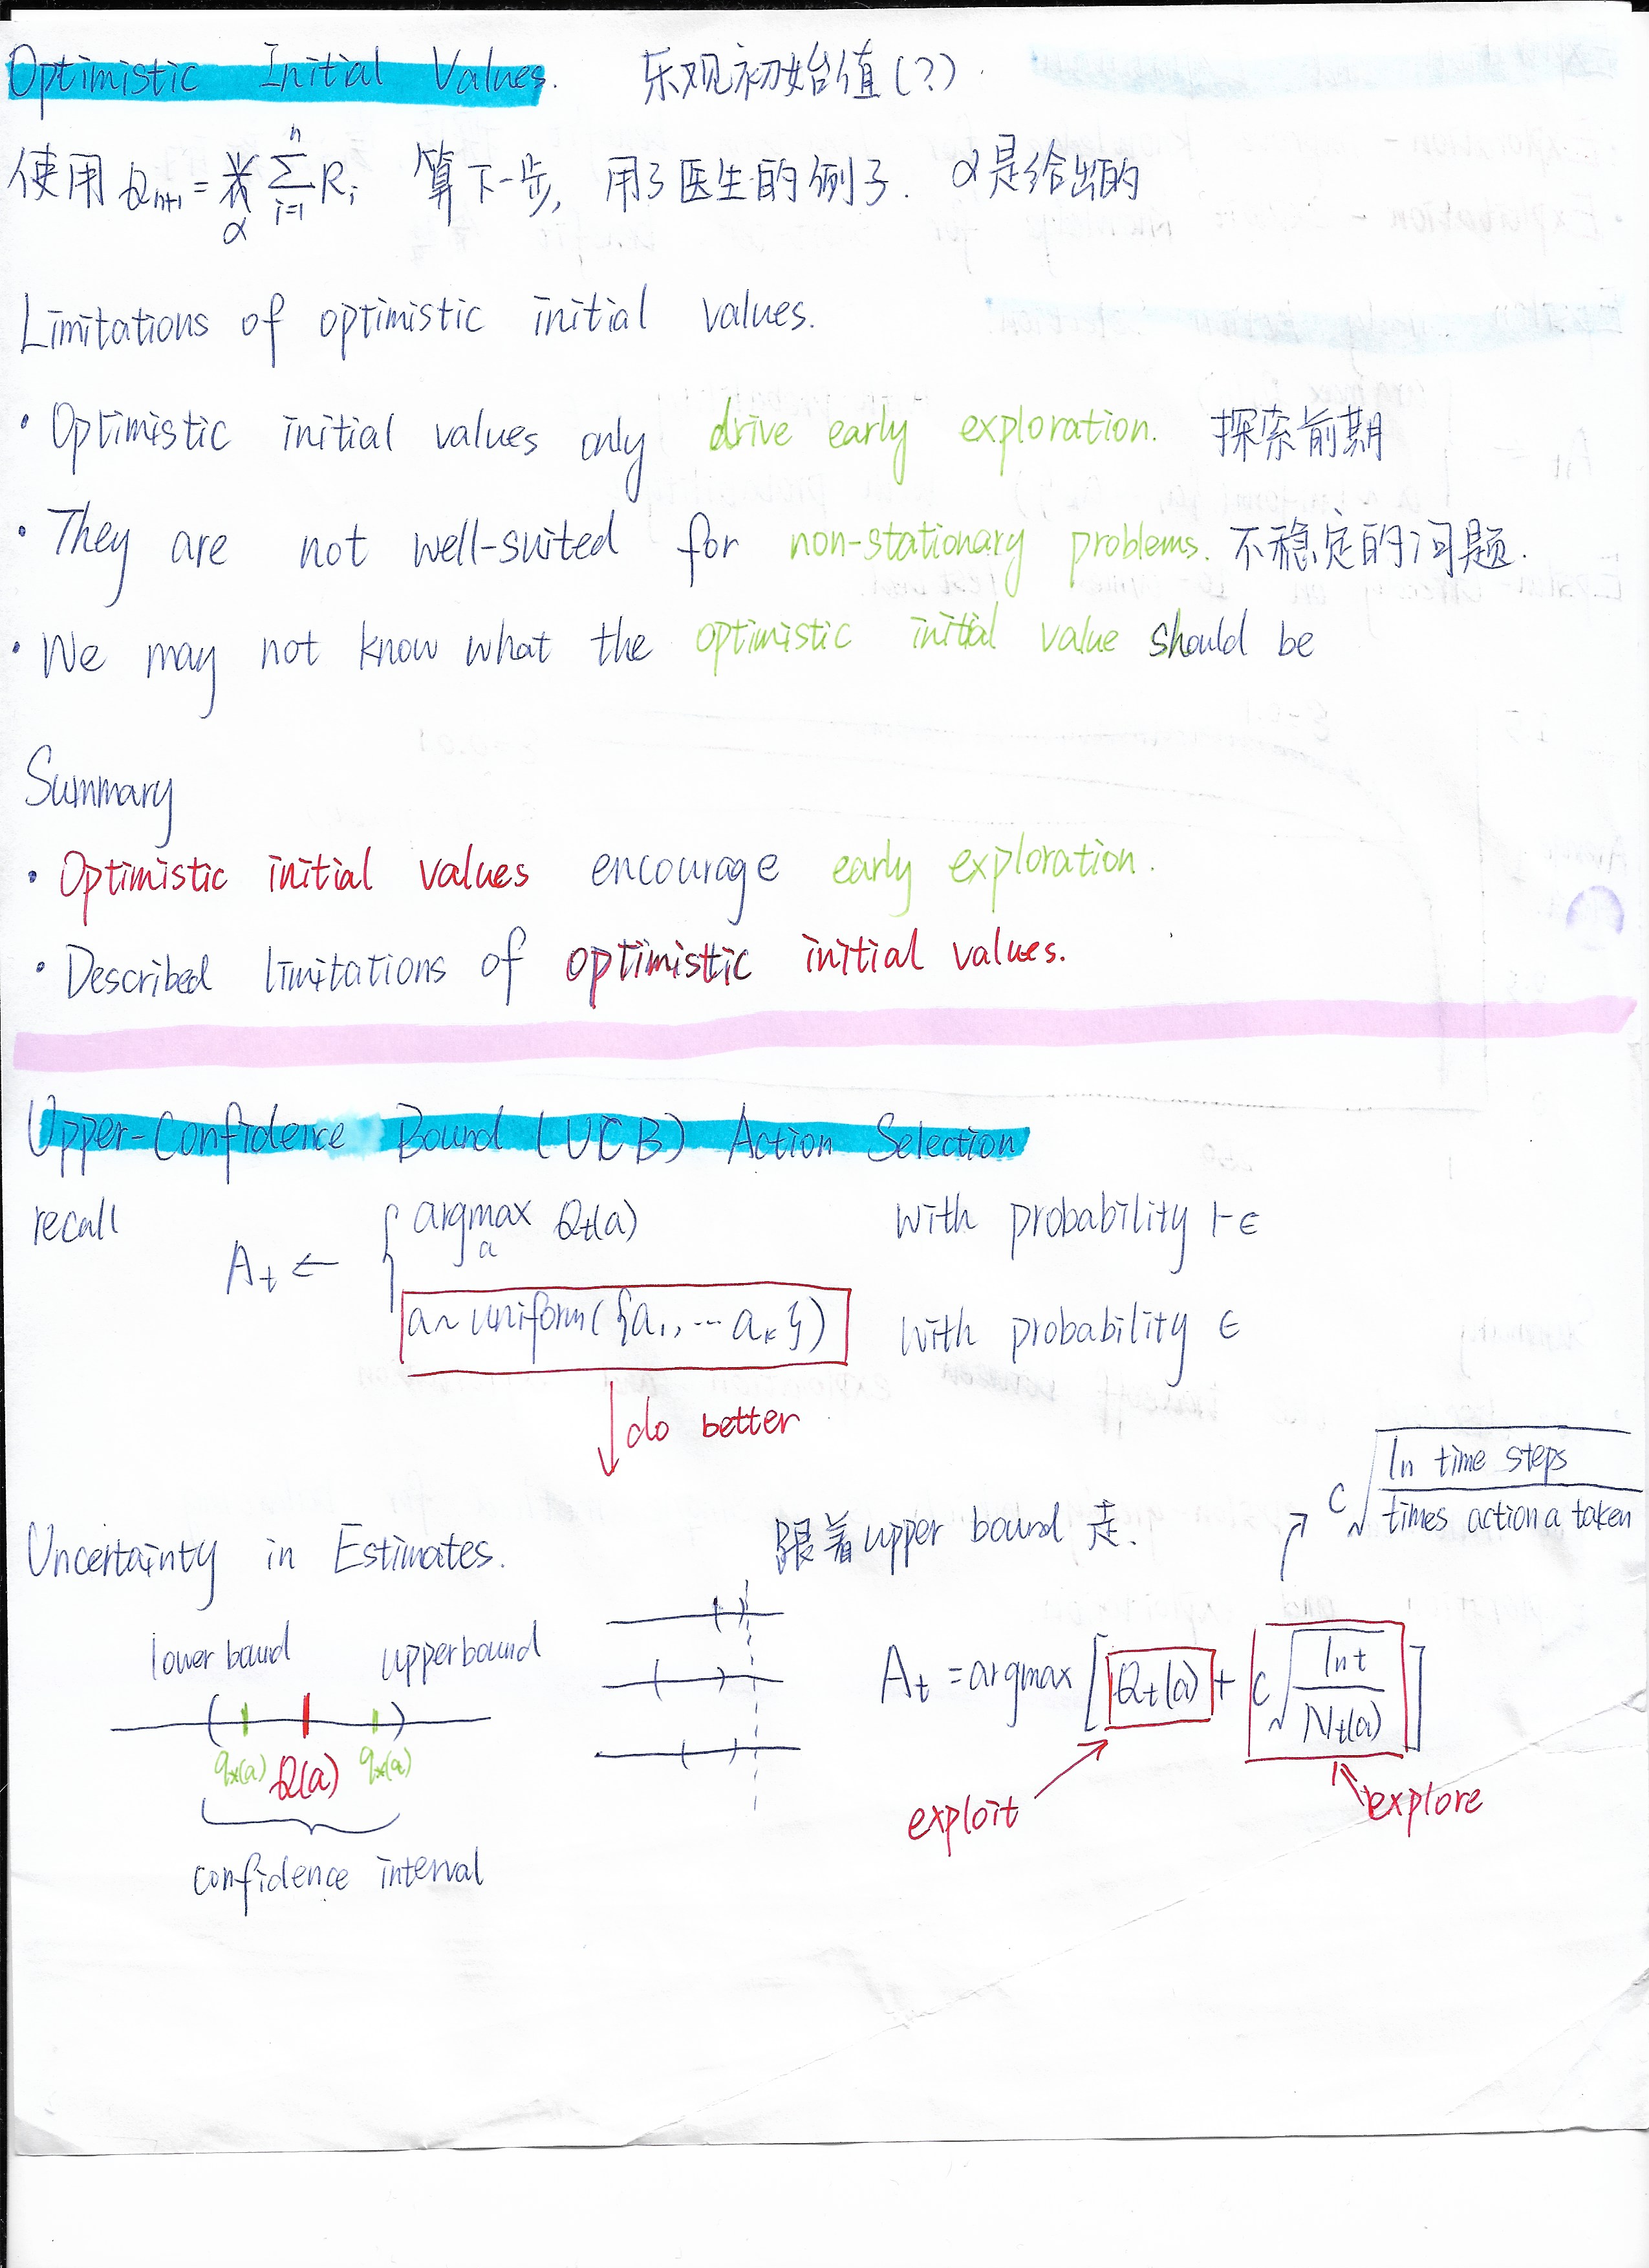 Optimistic Initial Values. 乐观初始值(?).
使用 Qn+1 = α Σ(i=1 to n) Ri 算下一步, 用了医生的例子. α是给出的
Limitations of optimistic initial values.
· Optimistic initial values only drive early exploration. 探索前期
· They are not well-suited for non-stationary problems. 不稳定的问题.
· We may not know what the optimistic initial value should be
Summary
· Optimistic initial values encourage early exploration.
· Described limitations of optimistic initial values.
Upper-Confidence Bound (UCB) Action Selection
recall
At ← { argmax_a Qt(a) with probability 1-ϵ
a~uniform({a1, ... ak}) with probability ϵ
do better
Uncertainty in Estimates.
跟着upper bound 走.
c√(ln time steps / times action a taken)
lower bound upper bound
q*(a) Q(a) q*(a)
confidence interval
At = argmax [Qt(a) + c√(ln t / Nt(a))]
exploit
explore